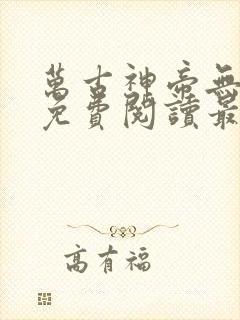 萬古神帝無
免費閱讀最
高有福